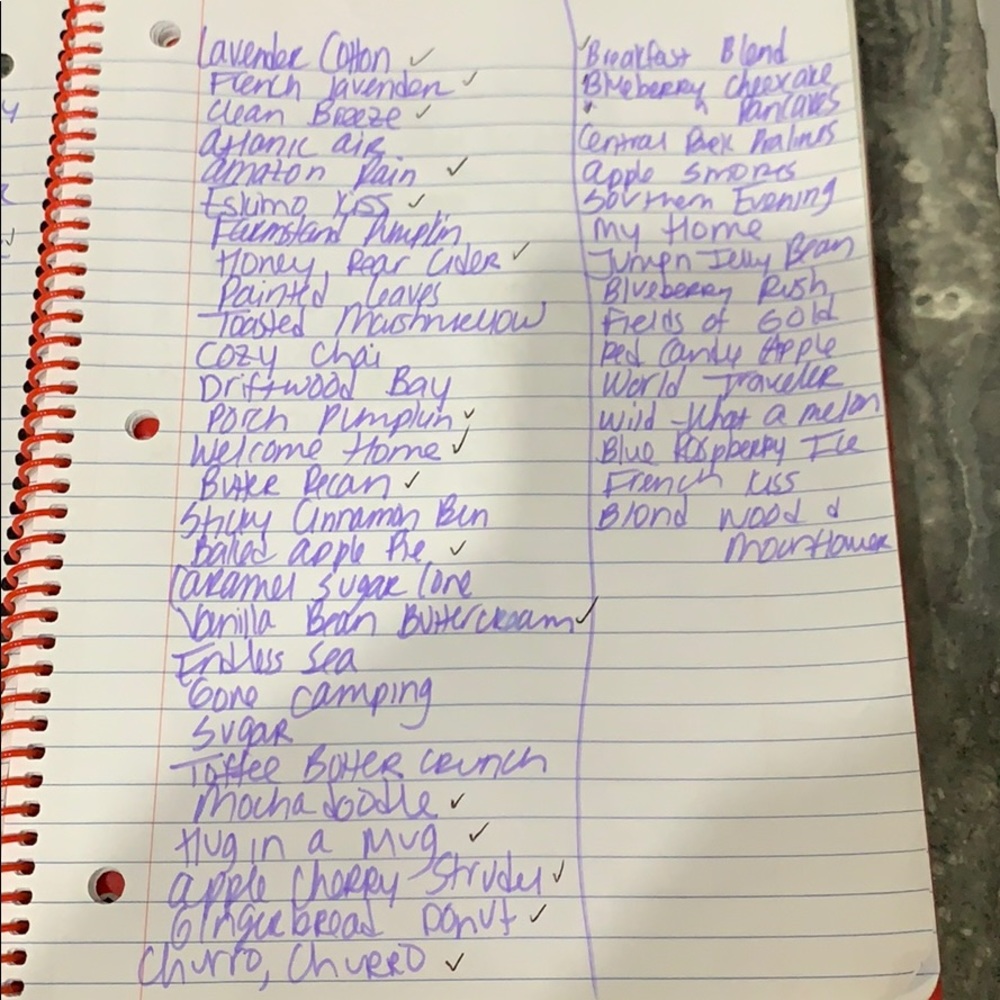 Lavender Cotton ✓
French Lavender ✓
Clean Breeze ✓
Atlanic air
Amazon Rain ✓
Eskimo Kiss ✓
Farmstand Pumpkin
Honey Pear Cider ✓
Painted Leaves
Toasted Marshmellow
Cozy Chai
Driftwood Bay
Porch Pumpkin ✓
Welcome Home ✓
Butter Pecan ✓
Sticky Cinnamon Bun
Baked apple Pie ✓
Caramel Sugar Cone
Vanilla Bean Buttercream ✓
Endless Sea
Gone Camping
Sugar
Toffee Butter Crunch
Mocha doodle ✓
Hug in a Mug ✓
Apple Cherry Strudel ✓
Gingerbread Donut ✓
Churro, Churro ✓
✓Breakfast Blend
Blueberry Cheexcake
" " Pancakes
Central Park
Apple Smores
Southern Evening
My Home
Jelly Bean
Blueberry Rush
Fields of Gold
Red Candy Apple
World Traveler
Wild What a melon
Blue Raspberry Ice
French Kiss
Blond Wood &
Moonflower